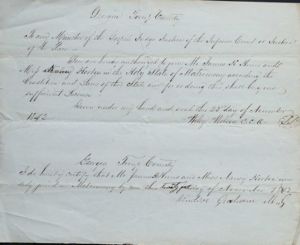 Georgia Troup County
To any Minister of the Gospel Judge Justice of the Superior Court or Justice
of the Peace
You are hereby authorized to join Mr James H. and
Miss Nancy Horton in the Holy State of Matrimony according the
Constitution and Laws of the State and for so doing this shall be your
sufficient License
Given under my hand and seal this 22nd day of November
1842
C.C.O.
Georgia Troup County
I do hereby certify that Mr James and Miss Nancy Horton were
duly joined in Matrimony by me this day of November 1842
Graham